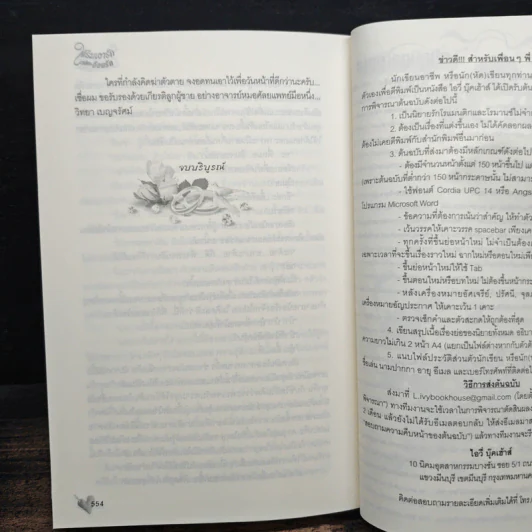 ใครที่กำลังคิดฆ่าตัวตาย จงอดทนเอาไว้เพื่อวันหน้าที่ดีกว่านะครับ...
เชื่อผม ขอรับรองด้วยเกียรติลูกผู้ชาย อย่างอาจารย์หมอศัลยแพทย์มือหนึ่ง...
วิทยา เบญจรัศม์
จบบริบูรณ์
554
ข่าวดี!!! สำหรับเพื่อน ๆ
นักเขียนอาชีพ หรือนัก(หัด)เขียนทุกท่าน
ตัวเองเพื่อตีพิมพ์เป็นหนังสือ ไอวี่ บุ๊คเฮ้าส์ ได้เปิดรับต้น
การพิจารณาต้นฉบับดังต่อไปนี้
1. เป็นนิยายรักโรแมนติกและโรมานซ์ไม่จำ
2. ต้องเป็นเรื่องที่แต่งขึ้นเอง ไม่ได้คัดลอก
ต้องไม่เคยตีพิมพ์กับสำนักพิมพ์อื่นมาก่อน
3. ต้นฉบับที่ส่งมาต้องมีหลักเกณฑ์ดังต่อไป
- ต้องมีจำนวนหน้าตั้งแต่ 150 หน้าขึ้นไป
(เพราะต้นฉบับที่ต่ำกว่า 150 หน้ากระดาษนั้น ไม่สามาร
- ใช้ฟอนต์ Cordia UPC 14 หรือ Angs
โปรแกรม Microsoft Word
- ข้อความที่ต้องการเน้นว่าสำคัญ ให้ทำตัว
- เว้นวรรคให้เคาะวรรค spacebar เพียงเค
- ทุกครั้งที่ขึ้นย่อหน้าใหม่ ไม่จำเป็นต้อง
เฉพาะเวลาที่จะขึ้นเรื่องราวใหม่ ฉากใหม่หรือตอนใหม่เพีย
- ขึ้นย่อหน้าใหม่ให้ใช้ Tab
- ขึ้นตอนใหม่หรือบทใหม่ ไม่ต้องขึ้นหน้ากระ
- หลังเครื่องหมายอัศเจรีย์, ปรัศนี, จุล
เครื่องหมายอัญประกาศ ให้เคาะเว้น 1 เคาะ
- ตรวจเช็กคำและตัวสะกดให้ถูกต้องที่สุด
4. เขียนสรุปเนื้อเรื่องย่อของนิยายทั้งหมด อธิบา
ความยาวไม่เกิน 2 หน้า A4 (แยกเป็นไฟล์ต่างหากกับตัวต้
5. แนบไฟล์ประวัติส่วนตัวนักเขียน หรือนัก(
ชื่อเล่น นามปากกา อายุ อีเมล และเบอร์โทรศัพท์ที่ติดต่อ
วิธีการส่งต้นฉบับ
ส่งมาที่ L.ivybookhouse@gmail.com (โดยตั้
พิจารณา") ทางทีมงานจะใช้เวลาในการพิจารณาตัดสินผลง
2 เดือน แล้วยังไม่ได้รับอีเมลตอบกลับ ให้ส่งอีเมลมาส
"สอบถามความคืบหน้าของต้นฉบับ") แล้วทางทีมงานจะรี
ไอวี่ บุ๊คเฮ้าส์
10 นิคมอุตสาหกรรมบางชัน ซอย 5/1 ถน
แขวงมีนบุรี เขตมีนบุรี กรุงเทพมหานค
ติดต่อสอบถามรายละเอียดเพิ่มเติมได้ที่ โทร.